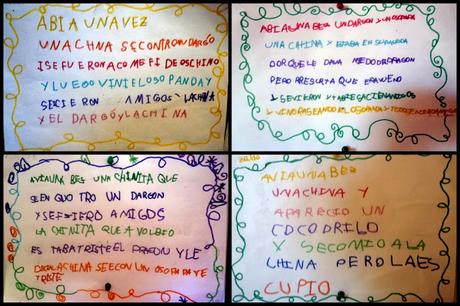 ABIA UNAVEZ
UNACHNA SECONTRON DARGO
ISEFUERONACOMEFIDEOSCHINO
YLUEGO VINIELOSOPANDAY
SEICIERON AMIGOS LACHINA
Y EL DARGÓ Y LACHINA
ABIAUNABEZ UNDARGON
UNA CHINA Y ESTABA EN
DORQUELE DAVA MEDO DRAGON
PERO QUE ERABUENO
Y SEVIERON
Y VINO PASEANDO
AVIAUNA BES UNACHINITA QUE
SIEN QUO TRO UN DARGON
Y SEFIERO AMIGOS
LA CHINITA QUE A VOLBIO
ES TABATRISTE EL DRAGON YLE
LACHINA SEECON UN OSO PA YE
TRISTE
AVIAUNA BEZ
UNACHINA Y
APARECIO UN
COCODRILO
Y SECOMIO ALA
CHINA PEROLAES
CUPIO